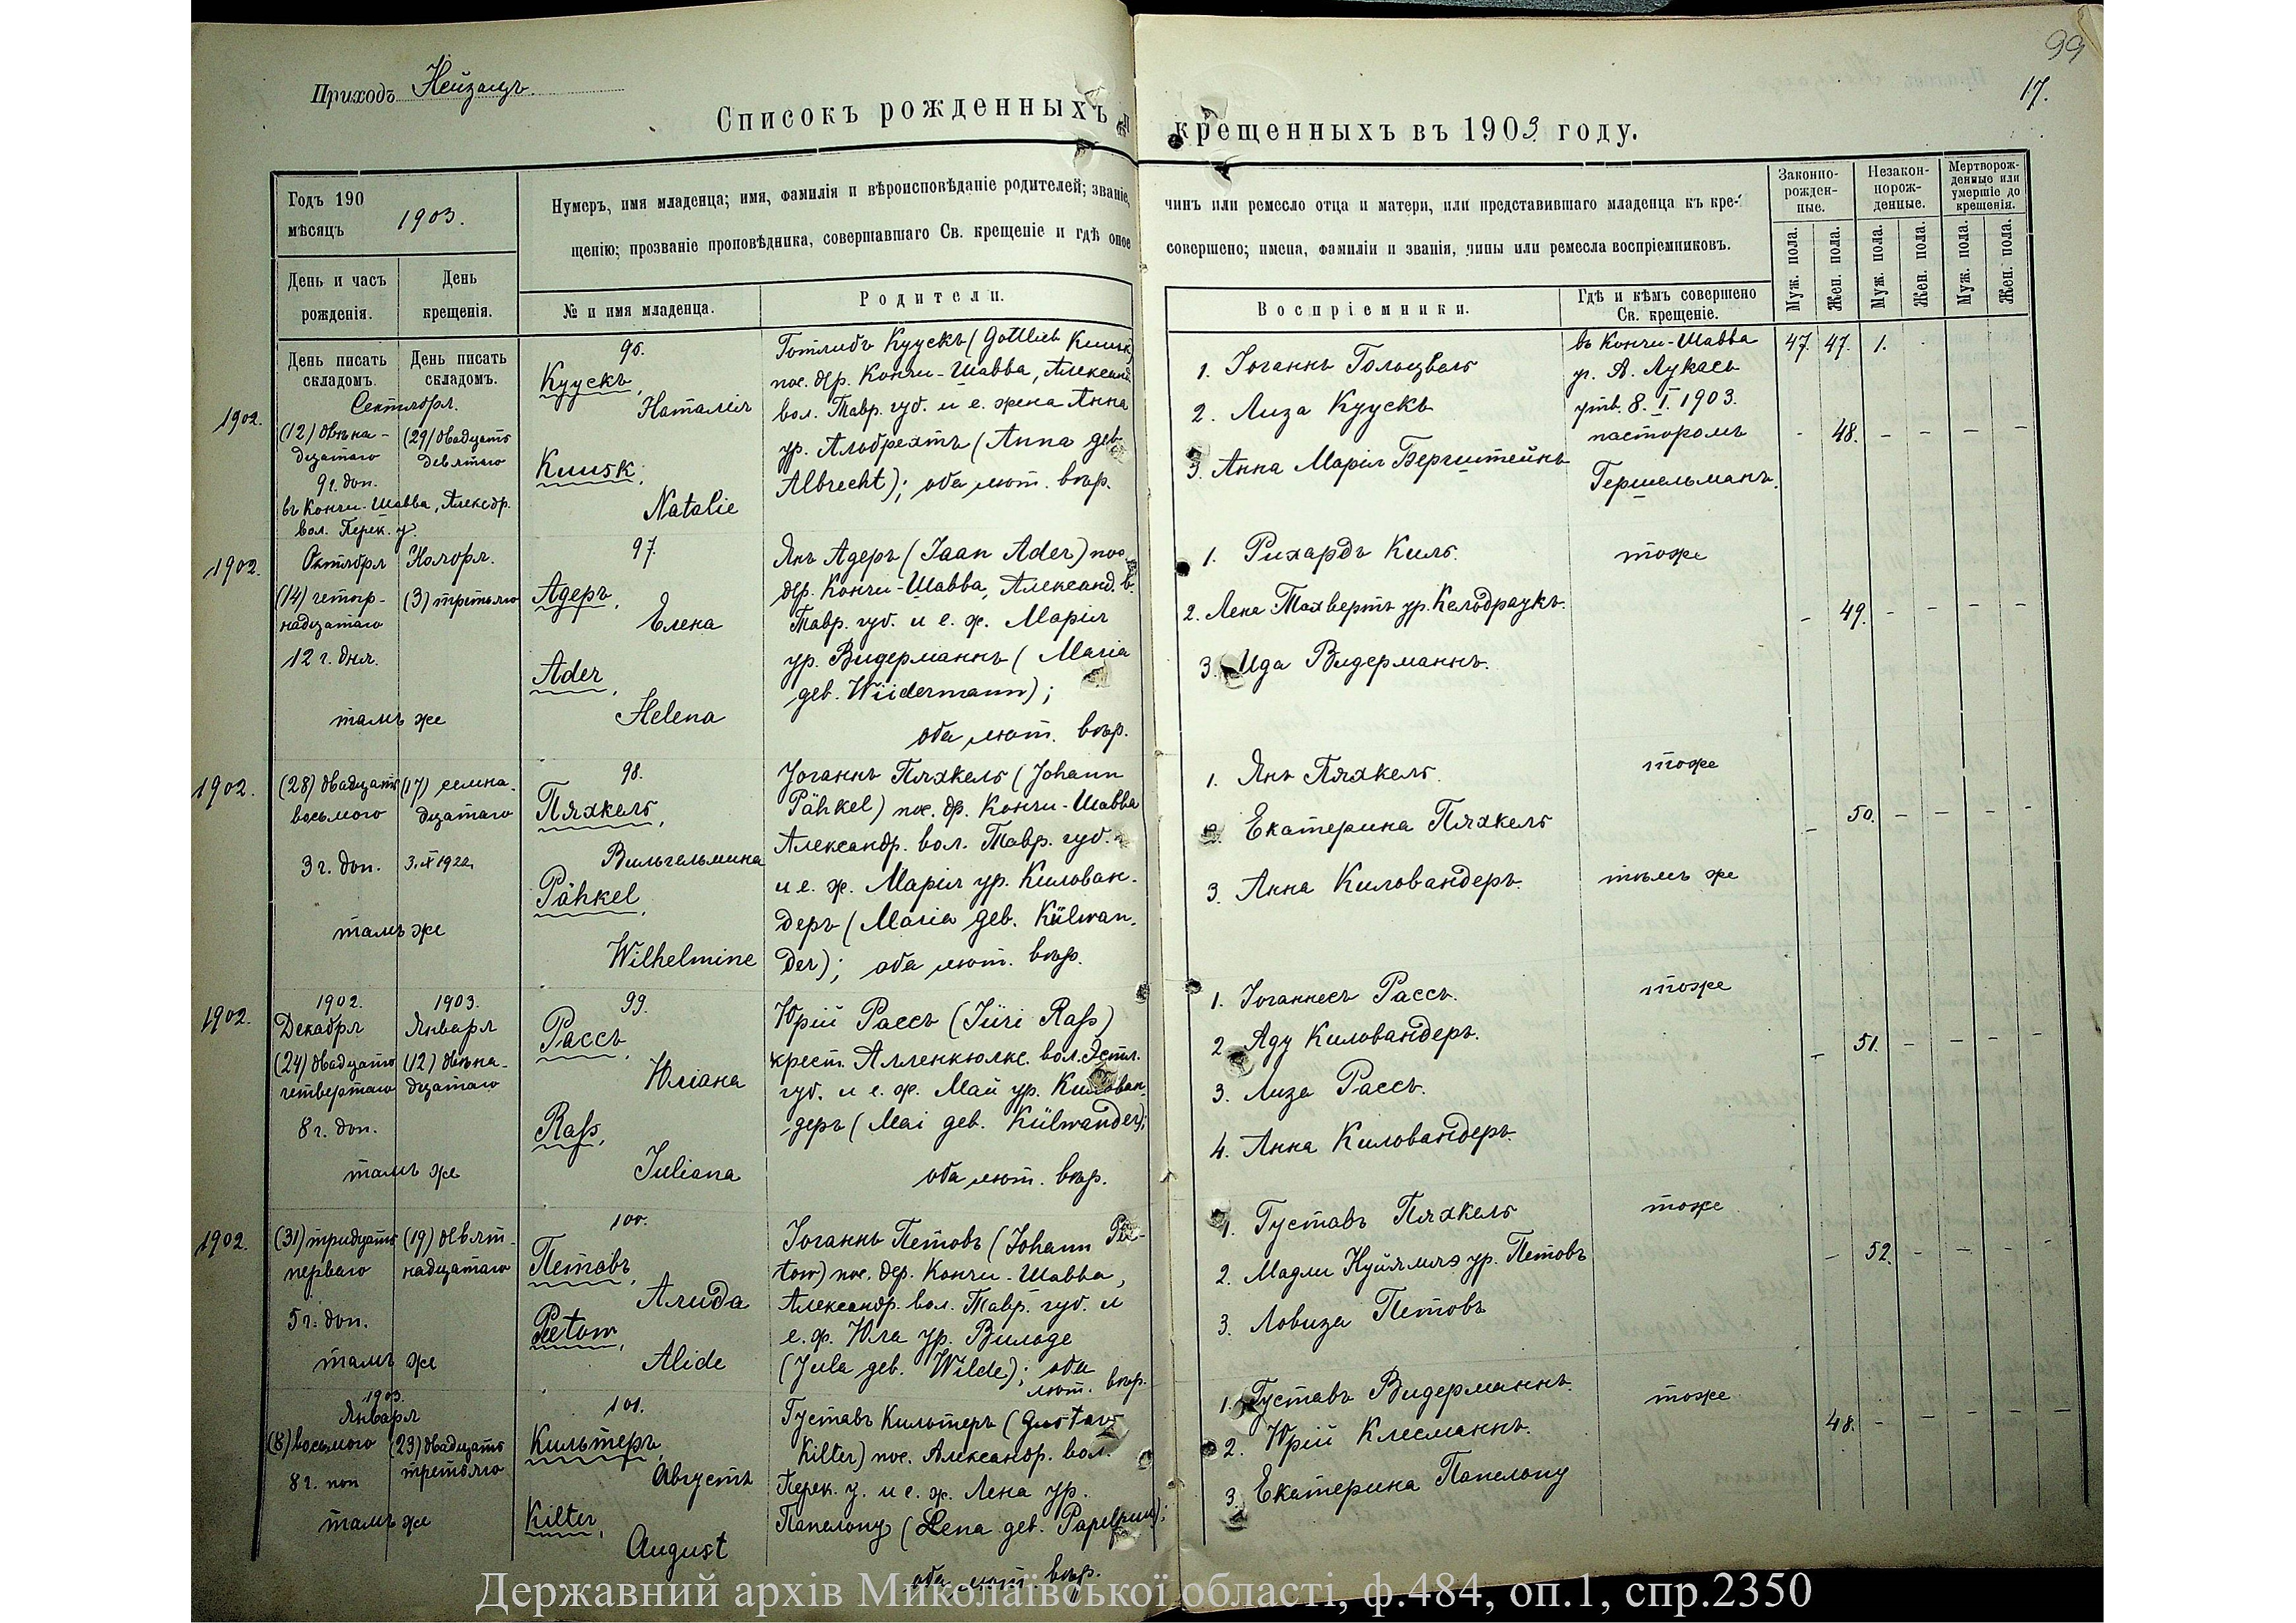 99
17.
Приходъ Нейзацъ.
Списокъ рожденныхъ и крещенныхъ въ 1903 году.
Годъ 190
мѣсяцъ
1903.
Нумеръ, имя младенца; имя, фамилія и вѣроисповѣданіе родителей; званіе,
чинъ или ремесло отца и матери, или представившаго младенца къ кре-
щенію; прозваніе проповѣдника, совершавшаго Св. крещеніе и гдѣ оное
совершено; имена, фамиліи и званія, чины или ремесла воспріемниковъ.
Законно-
рожден-
ные.
Незакон-
норож-
денные.
Мертворож-
денные или
умершіе до
крещенія.
День и часъ
рожденія.
День
крещенія.
№ и имя младенца.
Родители.
Воспріемники.
Гдѣ и кѣмъ совершено
Св. крещеніе.
Муж. пола.
Жен. пола.
Муж. пола.
Жен. пола.
Муж. пола.
Жен. пола.
День писать
складомъ.
День писать
складомъ.
1902.
Сентября.
(12) двѣна-
дцатаго
9 г. доп.
въ Кончи-Шавва, Алексдр.
вол. Перек. у.
(29) двадцать
девятаго
96.
Куускъ,
Наталія
Kuusk,
Natalie
Готлибъ Куускъ (Gottlieb Kuusk)
пос. дер. Кончи-Шавва, Александ.
вол. Тавр. губ. и е. жена Анна
ур. Альбрехтъ (Anna geb.
Albrecht); оба лют. вѣр.
1. Іоганнъ Гольцвель
2. Лиза Куускъ
3. Анна Марія Бергштейнъ
въ Кончи-Шавва
уч. А. Лукасъ
утв. 8. I. 1903.
пасторомъ
Гершельманъ.
47. 47. 1.
- 48. - - - -
1902.
Октября
Ноября.
(14) четыр-
надцатаго
12 г. дня.
тамъ же
(3) третьяго
97.
Адеръ,
Елена
Ader,
Helena
Янъ Адеръ (Jaan Ader) пос.
дер. Кончи-Шавва, Александ. в.
Тавр. губ. и е. ж. Марія
ур. Видерманнъ (Maria
geb. Wiidermann);
оба лют. вѣр.
1. Рихардъ Киль.
2. Лена Тахвертъ ур. Кельдраукъ.
3. Ида Видерманнъ.
тоже
- 49. - - - -
1902.
(28) двадцать
восьмого
3 г. доп.
тамъ же
(17) семна-
дцатаго
98.
Пяхкель,
Вильгельмина
Pähkel,
Wilhelmine
Іоганнъ Пяхкель (Johann
Pähkel) пос. др. Кончи-Шавва
Александр. вол. Тавр. губ.
и е. ж. Марія ур. Кильван-
деръ (Maria geb. Külwan-
der); оба лют. вѣр.
1. Янъ Пяхкель.
2. Екатерина Пяхкель
3. Анна Кильвандеръ.
тоже
тѣмъ же
- 50. - - - -
1902.
1902.
Декабря
(24) двадцать
четвертаго
8 г. доп.
тамъ же
1903.
Января
(12) двѣна-
дцатаго
99.
Рассъ,
Юліана
Raſs,
Juliana
Юрій Рассъ (Jüri Raſs)
крест. Алленкюлкс. вол. Эстл.
губ. и е. ж. Май ур. Кильван-
деръ (Mai geb. Külwander);
оба лют. вѣр.
1. Іоганнесъ Рассъ.
2. Аду Кильвандеръ.
3. Лиза Рассъ.
4. Анна Кильвандеръ.
тоже
- 51. - - - -
1902.
(31) тридцать
перваго
5 г. доп.
тамъ же
(19) девят-
надцатаго
100.
Петовъ,
Алида
Peetow,
Alide
Іоганнъ Петовъ (Johann Pee-
tow) пос. дер. Кончи-Шавва,
Александр. вол. Тавр. губ. и
е. ж. Юла ур. Вильде
(Jula geb. Wilde); оба
лют. вѣр.
1. Густавъ Пяхкель
2. Мадли Куйямяэ ур. Петовъ
3. Ловиза Петовъ
тоже
- 52. - - - -
1903.
Января
(8) восьмого
8 г. поп
тамъ же
(23) двадцать
третьяго
101.
Кильтеръ,
Августъ
Kilter,
August
Густавъ Кильтеръ (Gustav
Kilter) пос. Александр. вол.
Перек. у. и е. ж. Лена ур.
Папелопу (Lena geb. Papelpuu);
оба лют. вѣр.
1. Густавъ Видерманнъ.
2. Юрій Клесманнъ.
3. Екатерина Папелопу
тоже
48. - - - - -
Державний архів Миколаївської області, ф.484, оп.1, спр.2350